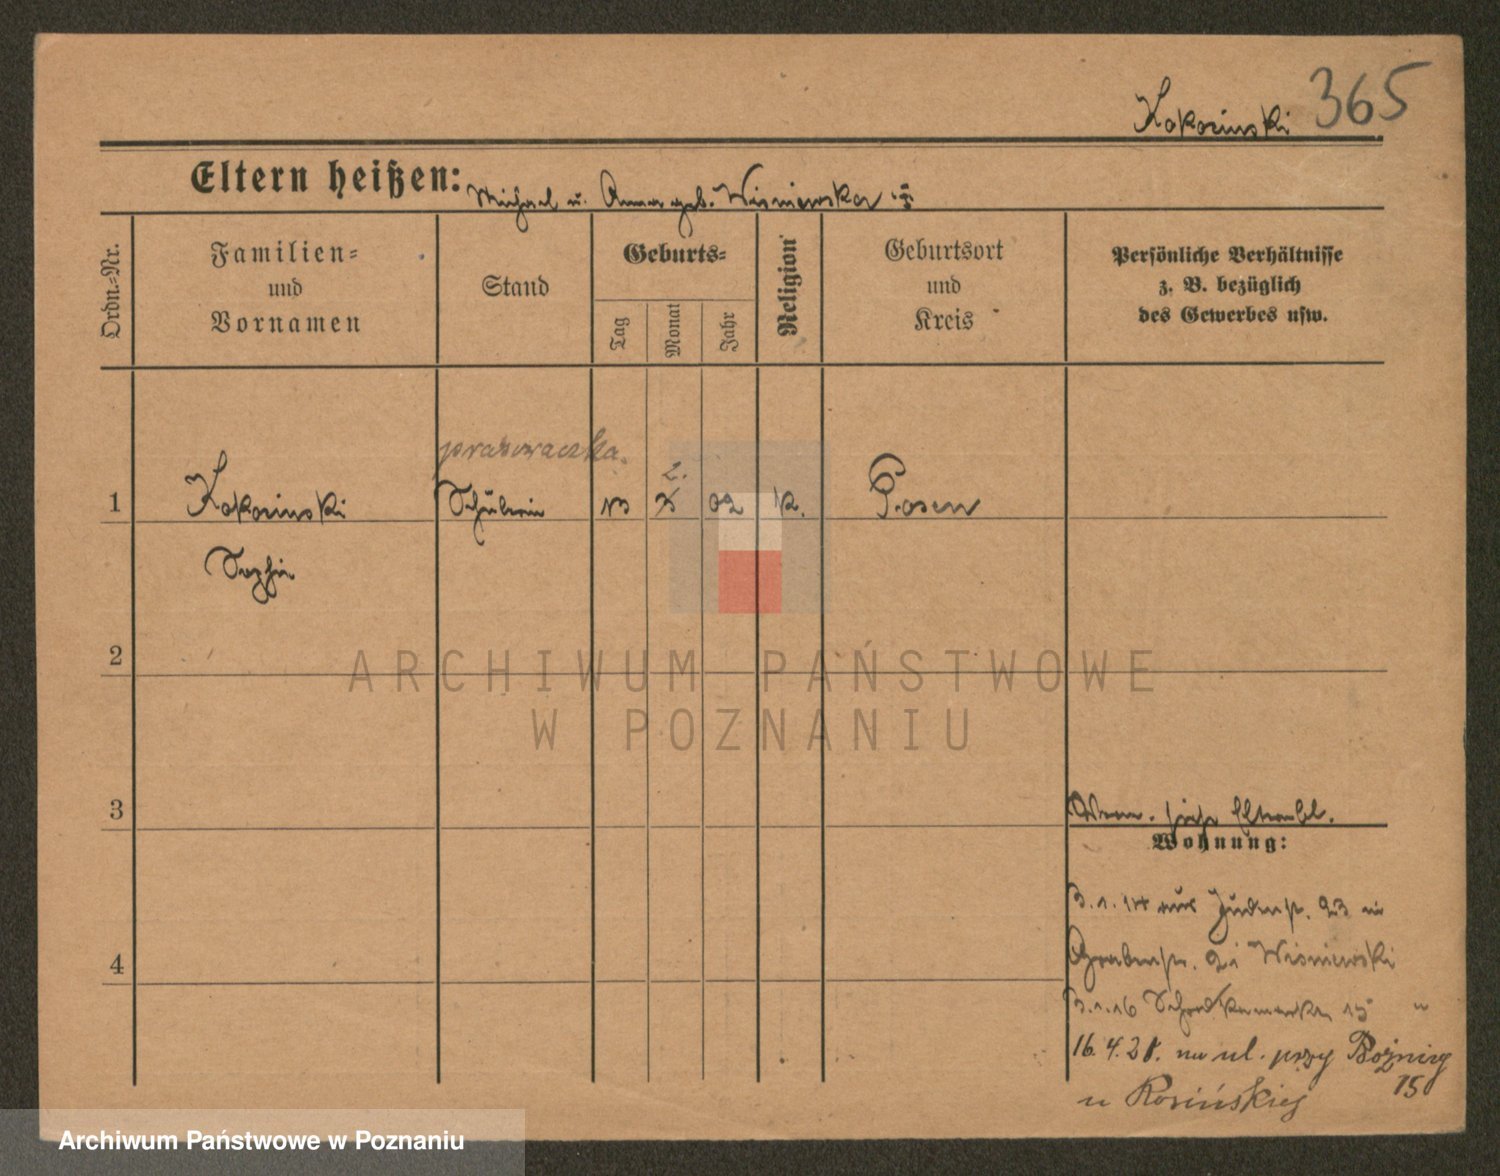 Kokocinski 365
Eltern heißen: Michael u. Anna geb. Wisniewska
Ordn.=Nr.
Familien=
und
Vornamen
Stand
Geburts=
Tag
Monat
Jahr
Religion
Geburtsort
und
Kreis
Persönliche Verhältnisse
z. B. bezüglich
des Gewerbes usw.
prasowaczka.
1 Kokocinski Schülerin 13 X 02 K. Posen
Sophie
2
3
siehe Elternbl.
Wohnung:
3.1.14 aus Judenstr. 23 in
4
Grabenstr. Wisniewski
3.1.16 15 "
16.4.21. na ul. przy Bożnicy
15
u Kosińskiej
ARCHIWUM PAŃSTWOWE
W POZNANIU
Archiwum Państwowe w Poznaniu